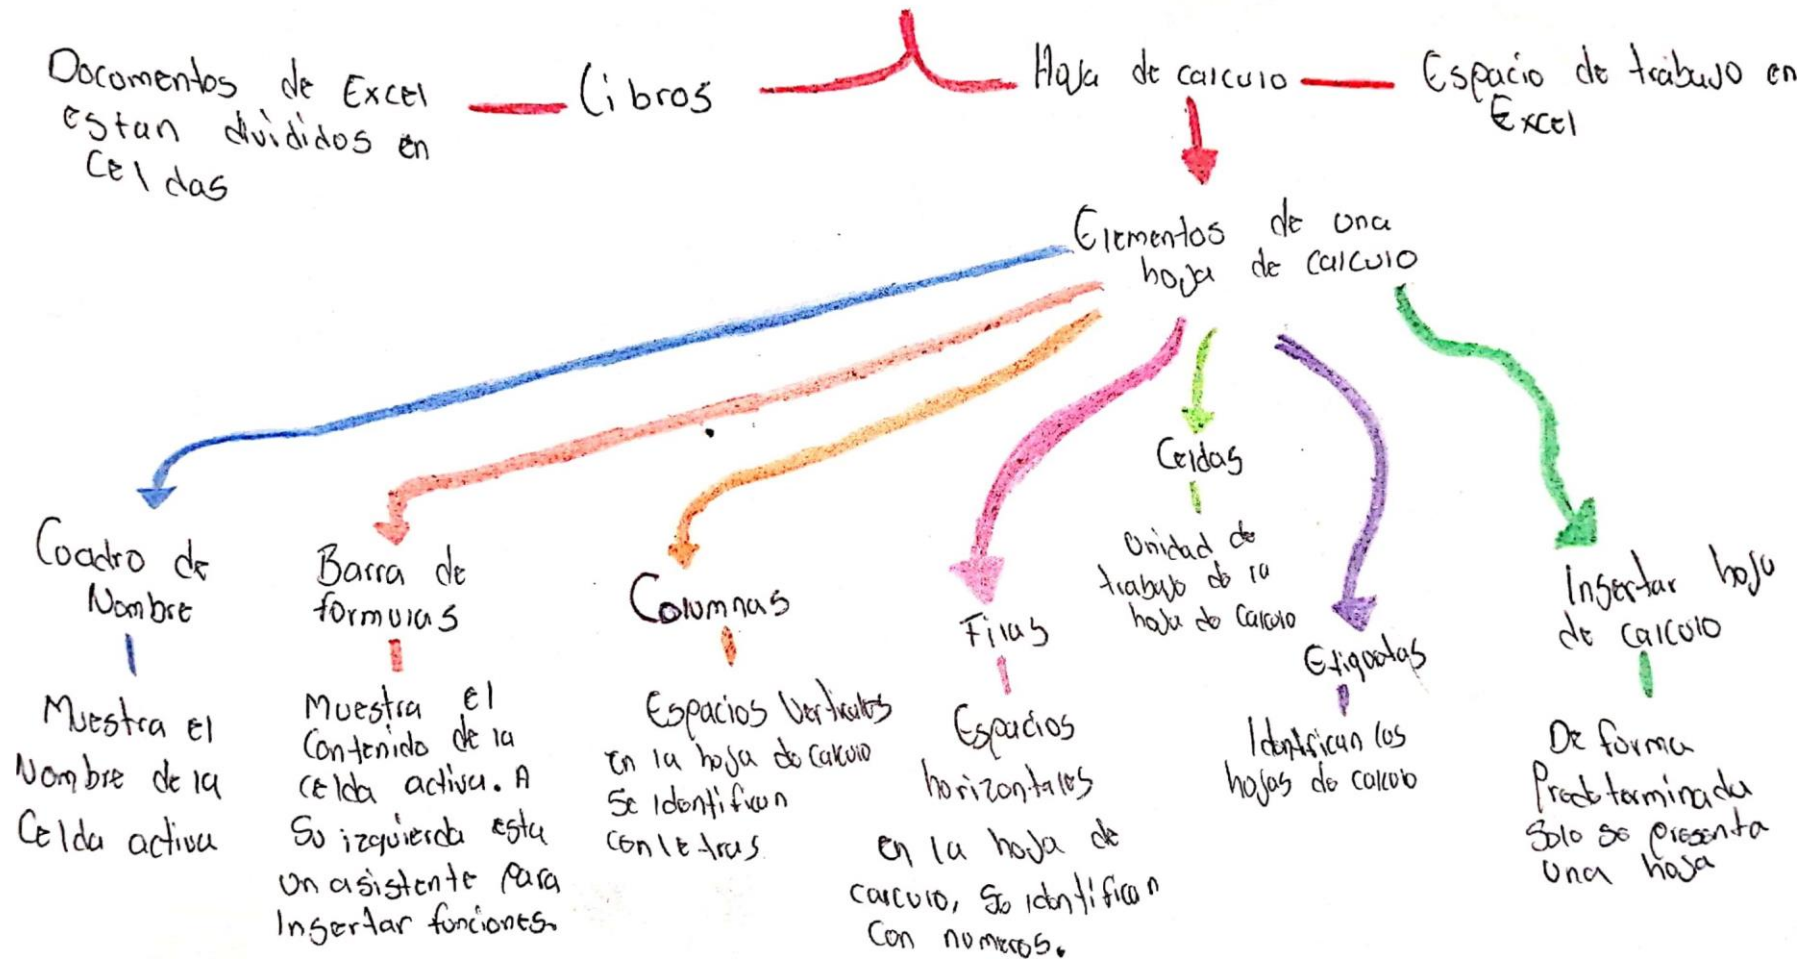 Documentos de Excel
estan divididos en
Celdas
Libros
Hoja de calculo
Espacio de trabajo en
Excel
Elementos de una
hoja de calculo
Cuadro de
Nombre
Muestra el
Nombre de la
Celda activa
Barra de
formulas
Muestra el
Contenido de la
celda activa. A
Su izquierda esta
un asistente para
Insertar funciones.
Columnas
Espacios Verticales
en la hoja de calculo
Se identifican
con letras
Filas
Espacios
horizontales
en la hoja de
calculo, se identifican
Con numeros.
Celdas
Unidad de
trabajo de la
hoja de Calculo
Etiquetas
Identifican las
hojas de calculo
Insertar hoja
de calculo
De forma
Predeterminada
Solo se presenta
una hoja